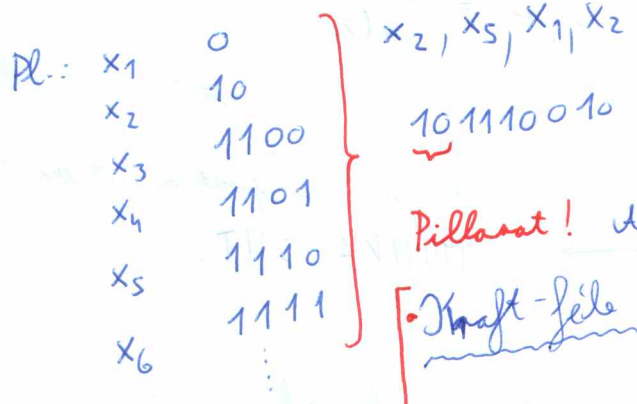 Pl.: x1 0
x2 10
x3 1100
x4 1101
x5 1110
x6 1111
⋮
x2, x5, x1, x2
10 1110 0 10
Pillanat!
• Kraft-féle